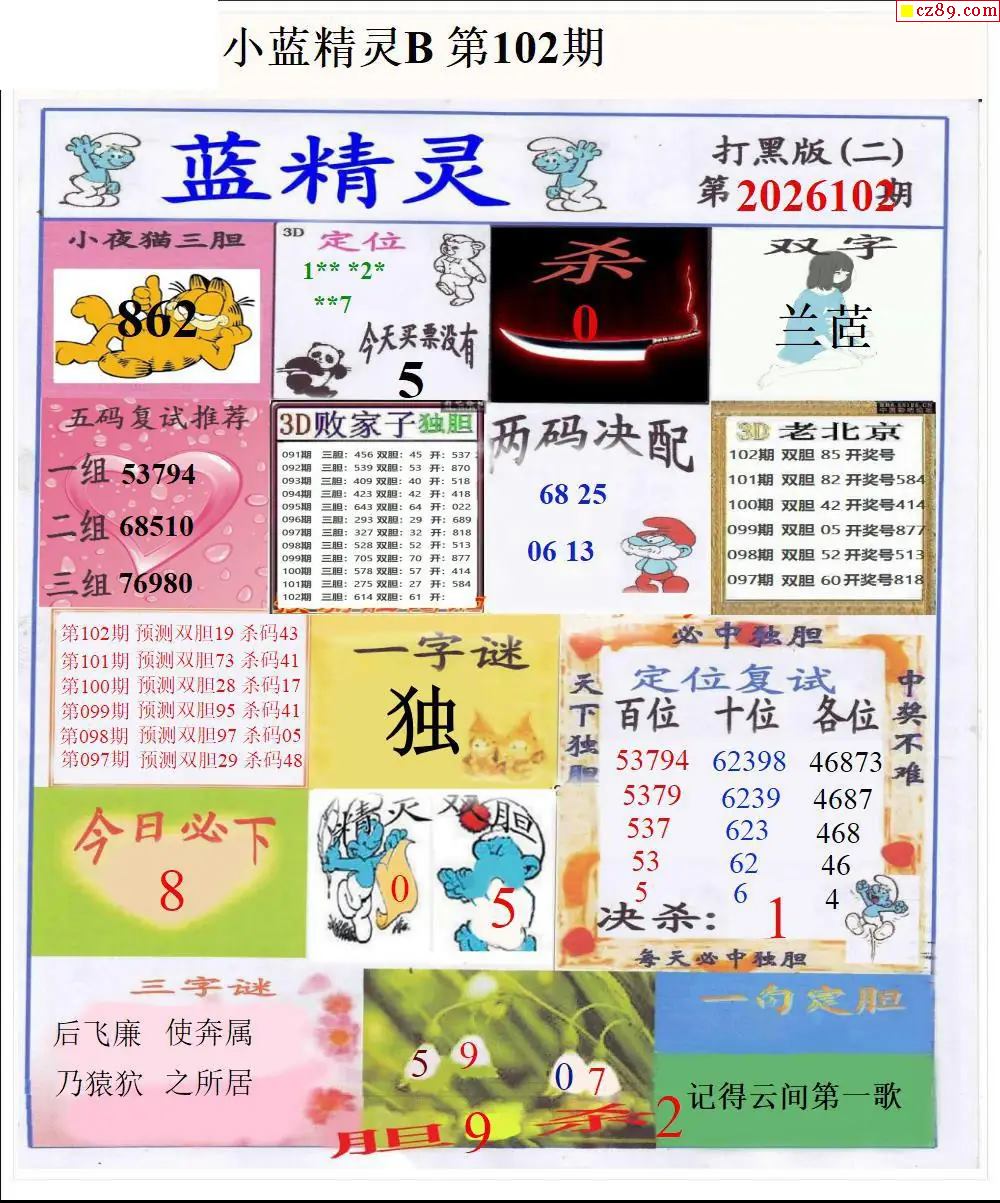 cz89.com
小蓝精灵B 第102期
蓝精灵
打黑版(二)
第2026102期
小夜猫三胆
862
3D 定位
1** *2*
**7
今天买票没有
5
杀
0
双字
兰茝
五码复试推荐
一组 53794
二组 68510
三组 76980
3D败家子独胆
091期 三胆：456 双胆：45 开：537
092期 三胆：539 双胆：53 开：870
093期 三胆：409 双胆：40 开：518
094期 三胆：423 双胆：42 开：418
095期 三胆：643 双胆：64 开：022
096期 三胆：293 双胆：29 开：689
097期 三胆：327 双胆：32 开：818
098期 三胆：528 双胆：52 开：513
099期 三胆：705 双胆：70 开：877
100期 三胆：578 双胆：57 开：414
101期 三胆：275 双胆：27 开：584
102期 三胆：614 双胆：61 开：
两码决配
68 25
06 13
3D 老北京
102期 双胆 85 开奖号
101期 双胆 82 开奖号584
100期 双胆 42 开奖号414
099期 双胆 05 开奖号877
098期 双胆 52 开奖号513
097期 双胆 60 开奖号818
第102期 预测双胆19 杀码43
第101期 预测双胆73 杀码41
第100期 预测双胆28 杀码17
第099期 预测双胆95 杀码41
第098期 预测双胆97 杀码05
第097期 预测双胆29 杀码48
一字谜
独
必中独胆
天下独胆
中奖不难
定位复试
百位 十位 各位
53794 62398 46873
5379 6239 4687
537 623 468
53 62 46
5 6 4
决杀： 1
每天必中独胆
今日必下
8
精灵双胆
0
5
三字谜
后飞廉 使奔属
乃猿狖 之所居
5 9 0 7
胆9 杀2
一句定胆
记得云间第一歌